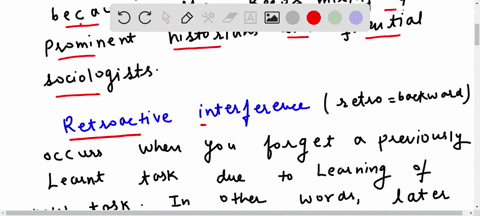 Prominent
sociologists.
Retroactive interference (retro=backward)
occurs when you forget a previously
Learnt task due to Learning of
task. In other words, later